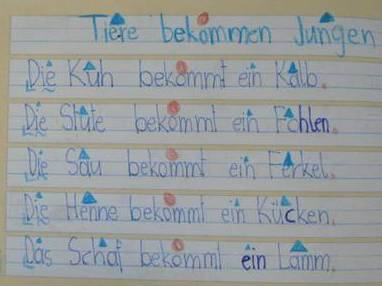 Tiere bekommen Jungen
Die Kuh bekommt ein Kalb.
Die Stute bekommt ein Fohlen.
Die Sau bekommt ein Ferkel.
Die Henne bekommt ein Kücken.
Das Schaf bekommt ein Lamm.